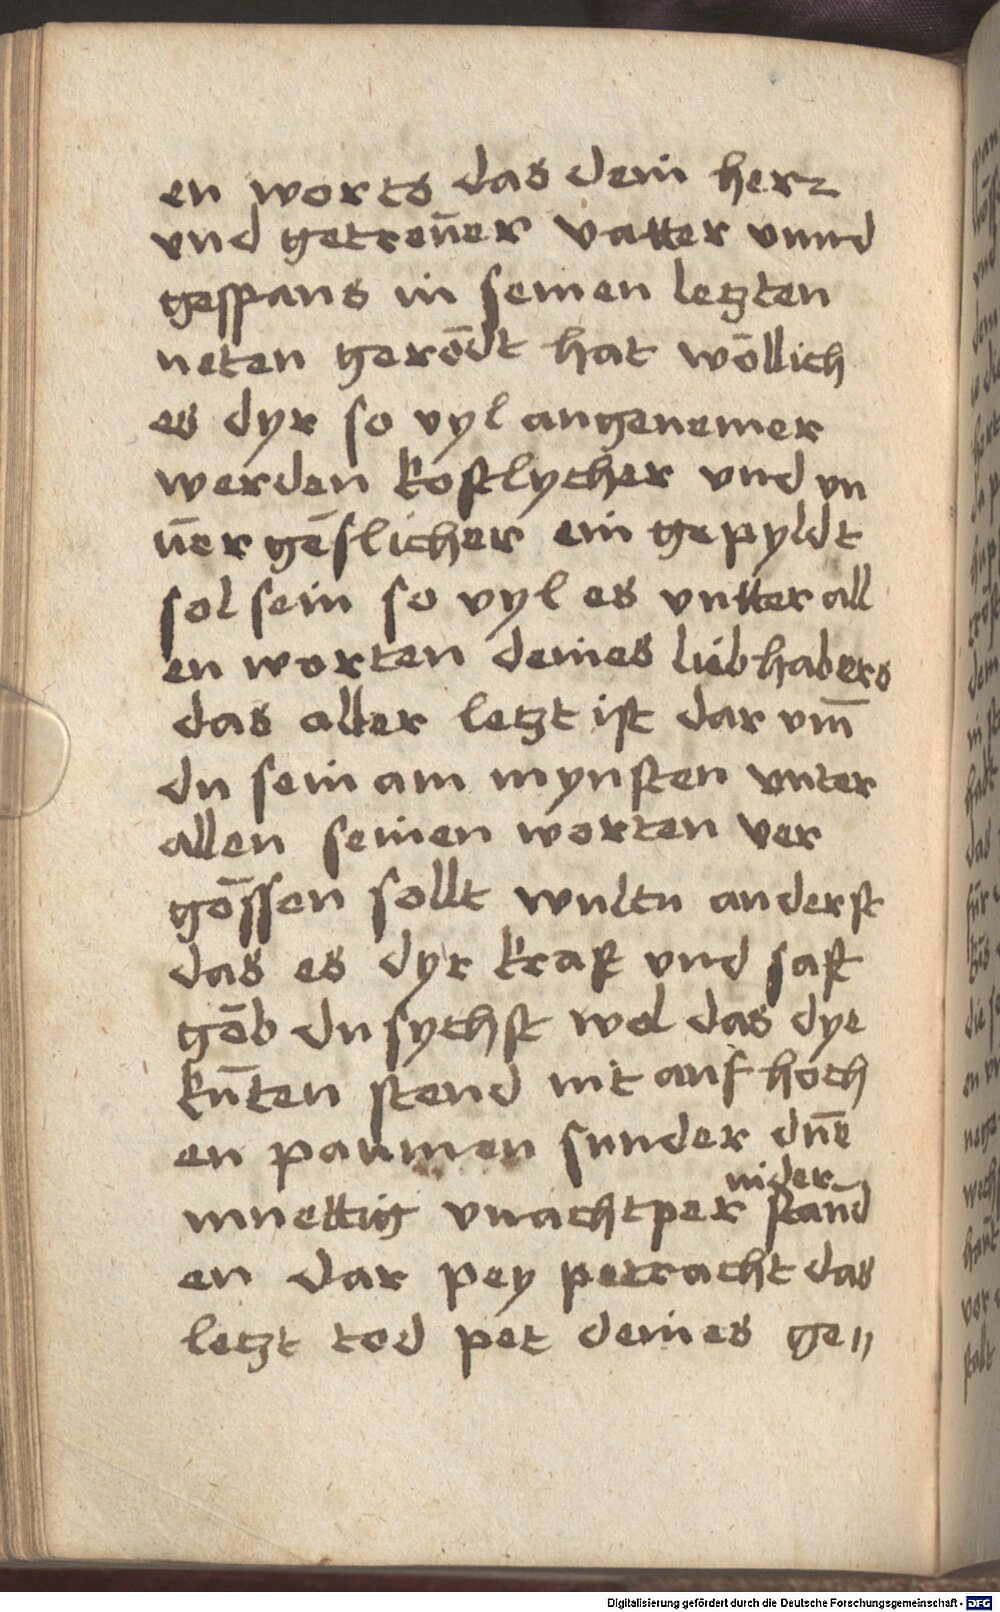 en worts das dein herꝛ
vnd getreūer vatter vnnd
gespans in seinen letzten
neten gerōdt hat wōllich
es dyr so vyl angenemer
werden kostlycher vnd vn
ūer gēslicher ein gepyldt
sol sein so vyl es vntter all
en worten deines liebhabers
das aller letzt ist dar vm̄
du sein am mynsten vnter
allen seinen worten ver
gōssen sollt wultu anderst
das es dyr kraft vnd saft
gōb du sychst wol das dye
kūten stend nit auf hoch
en paumen sunder dūe
nider
mnettig vnachtper stan̄d
en dar pey petracht das
letzt tod pet deines ge〃
Digitalisierung gefördert durch die Deutsche Forschungsgemeinschaft - DFG